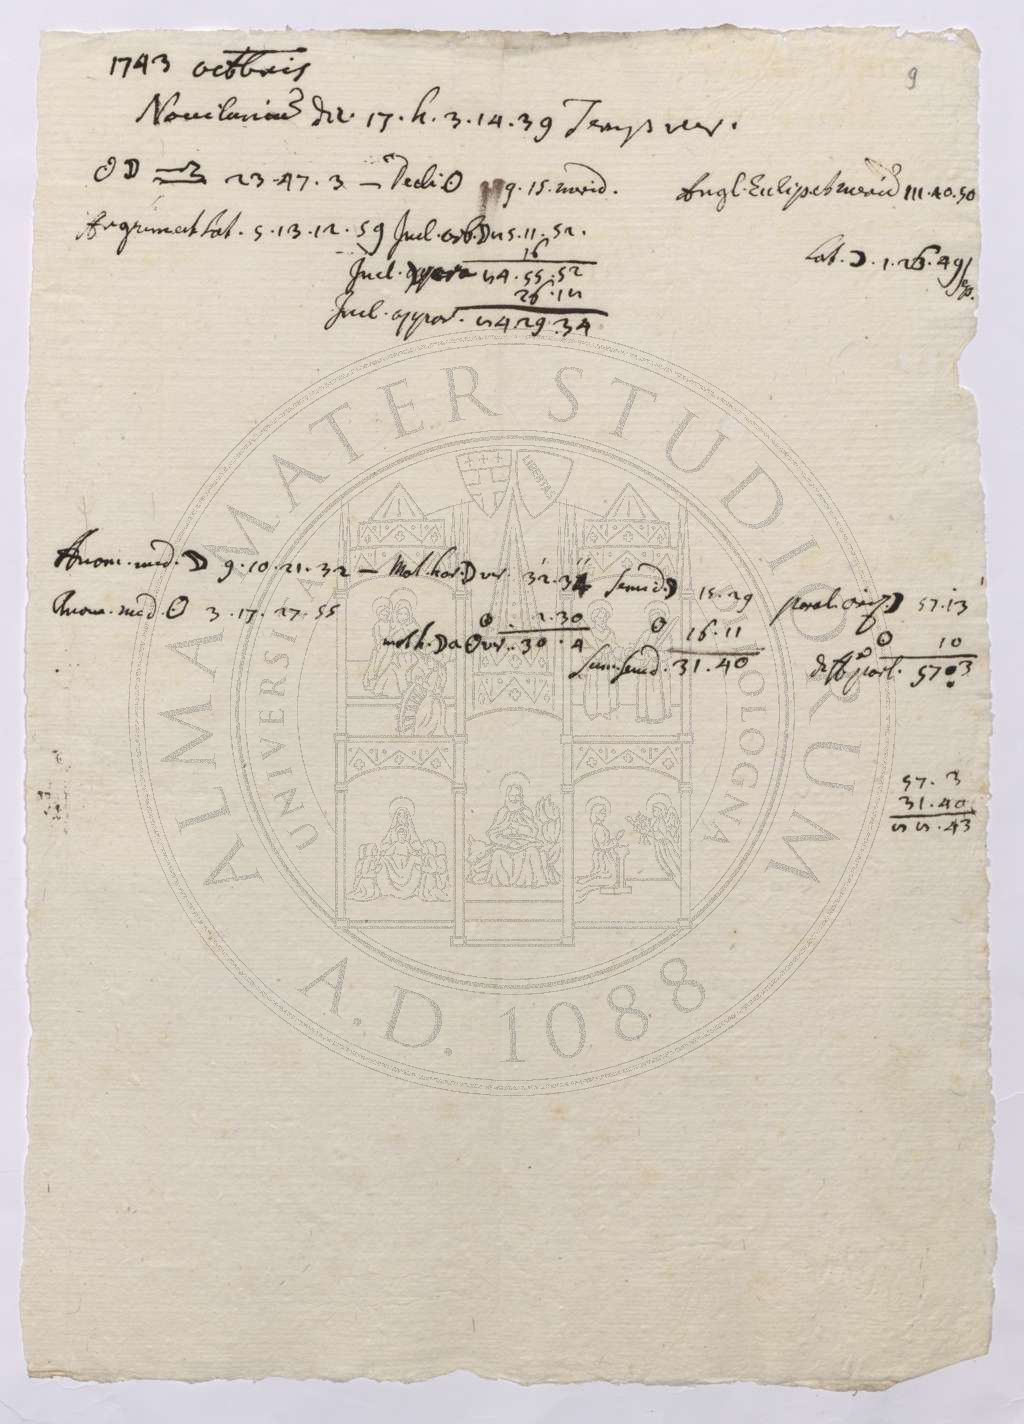 9
1743 octbris
Noviluniũ die. 17. h. 3. 14. 39 Temp. ver.
☉ ☽ ♎ 23. 47. 3 — Decli ☉ 9. 15. merid. Angl. Eclipt et merid 111. 40. 50
Argument Lat. 5. 13. 12. 59 Incl. orb. ☽ 5. 5. 11. 52. Lat. ☽. 1. 26. 49
16
Incl. 54. 55. 52
26. 15
Incl. appar. 54. 29. 34
Anom. med. ☽ 9. 10. 21. 32 — Mot. hor. ☽ ver. 32. 34 Semid. ☽ 15. 29 paral. oriz. ☽ 57. 13
Anom. med ☉ 3. 17. 27. 55 ☉ . 2. 30 ☉ 16. 11 ☉ 10
mot h. ☽ a ☉ ver. 30. 4 Sum. semid. 31. 40 diff paral. 57. 3
57. 3
31. 40
55. 43
ALMA MATER STUDIORUM
UNIVERSITÀ DI BOLOGNA
LIBERTAS
A.D. 1088